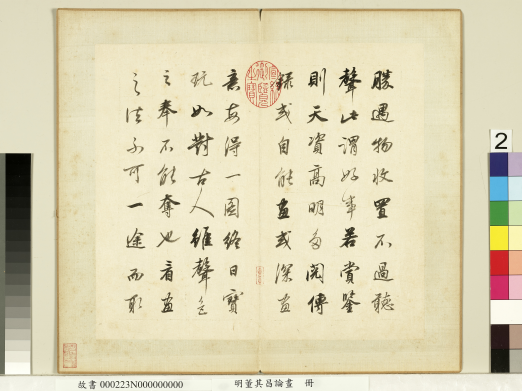 勝遇物收置不過聽
聲此謂好事若賞鑒
則天資高明多閱傳
錄或自能畫或深畫
意每得一圖終日寶
玩如對古人雖聲色
之奉不能奪也看畫
之法不可一途而取
2
故書 000223N000000000 明董其昌論畫 冊